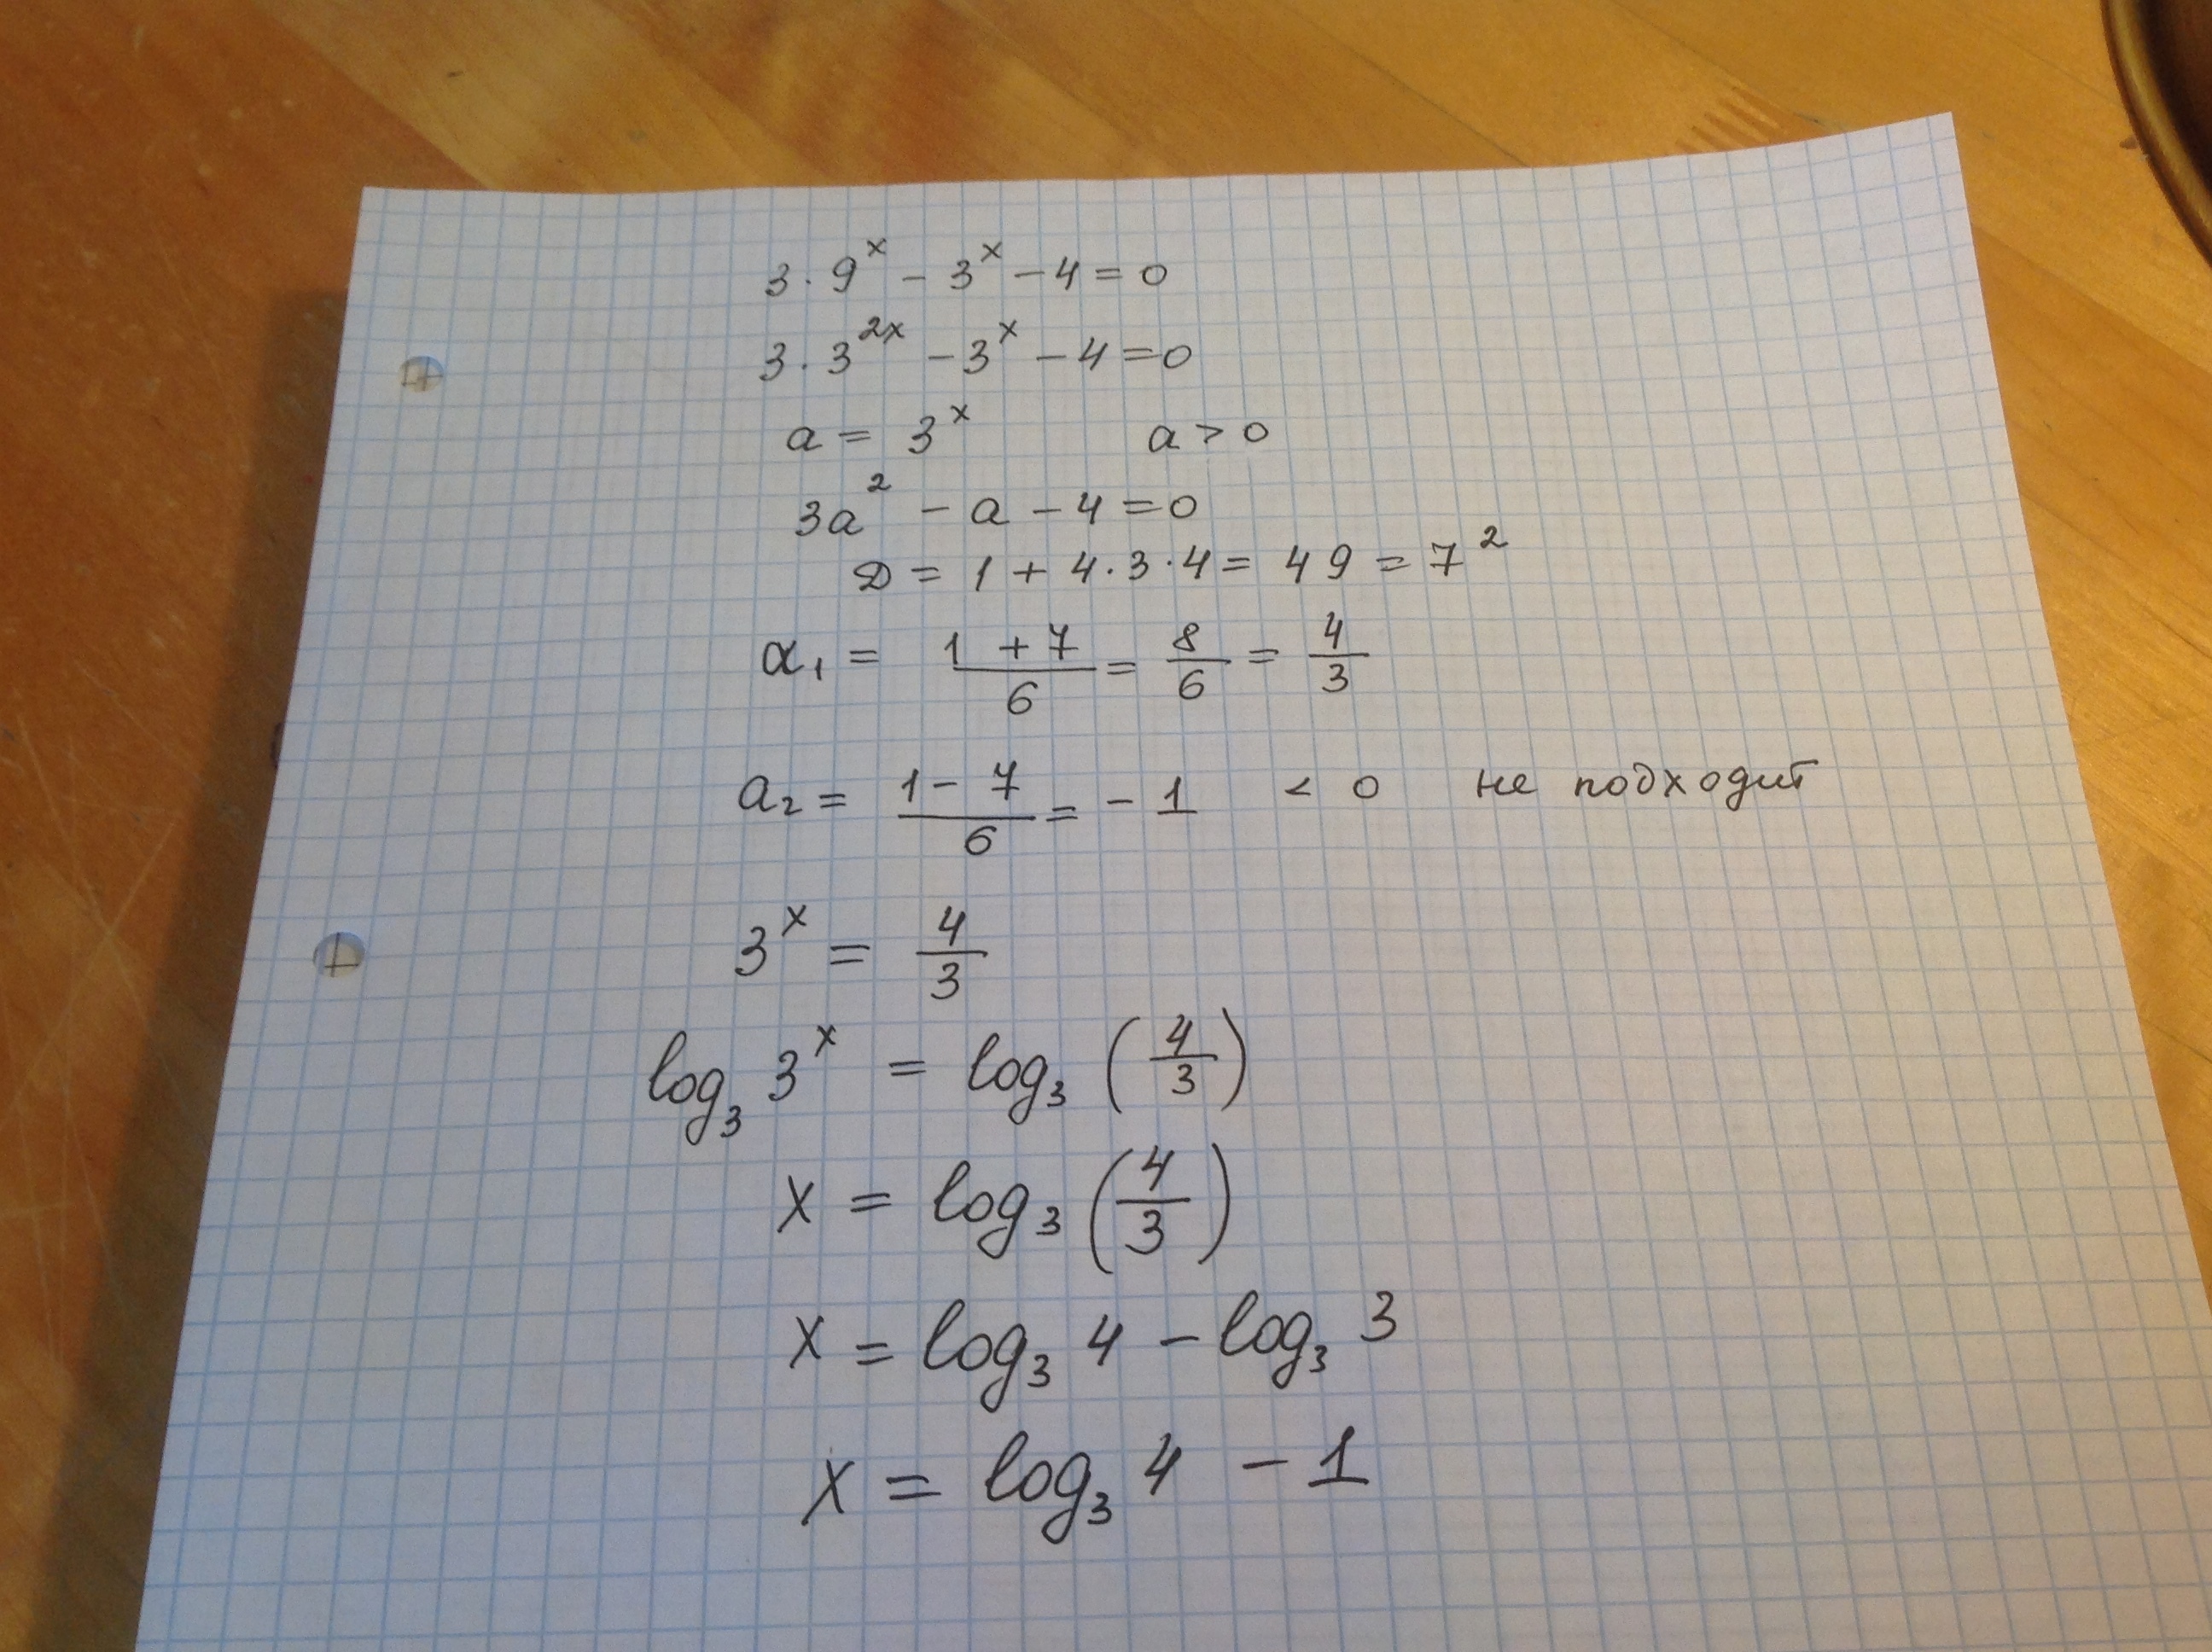 3 · 9^x - 3^x - 4 = 0
3 · 3^{2x} - 3^x - 4 = 0
a = 3^x a > 0
3a^2 - a - 4 = 0
D = 1 + 4 · 3 · 4 = 49 = 7^2
a_1 = \frac{1 + 7}{6} = \frac{8}{6} = \frac{4}{3}
a_2 = \frac{1 - 7}{6} = -1 < 0 не подходит
3^x = \frac{4}{3}
log_3 3^x = log_3 (\frac{4}{3})
x = log_3 (\frac{4}{3})
x = log_3 4 - log_3 3
x = log_3 4 - 1